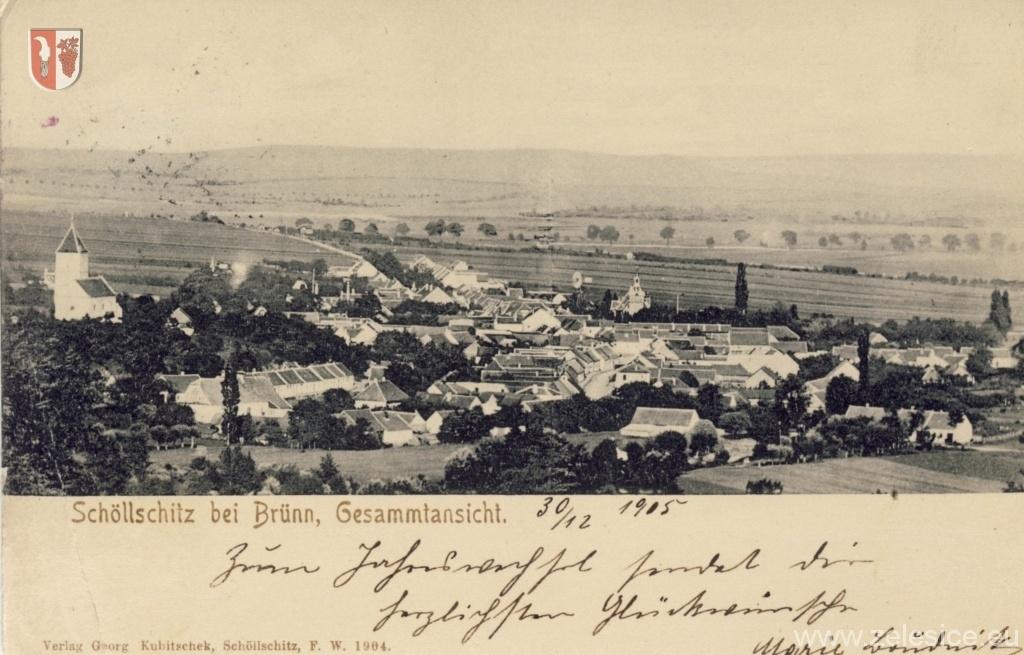 Schöllschitz bei Brünn, Gesammtansicht. 30/12 1905
Zum Jahreswechsel sendet die
herzlichsten Glückwünsche
Marie
Verlag Georg Kubitschek, Schöllschitz, F. W. 1904.
www.zelesice.eu